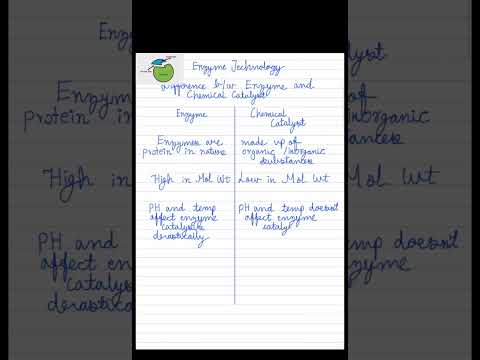 Enzyme Technology
difference b/w Enzyme and
Chemical Catalyst
Enzyme
Chemical
Catalyst
Enzymes are
protein in nature
made up of
organic /inorganic
substances
High in Mol Wt
Low in Mol Wt
PH and temp
affect enzyme
catalysis
derastically
PH and temp doesn't
affect enzyme
cataly